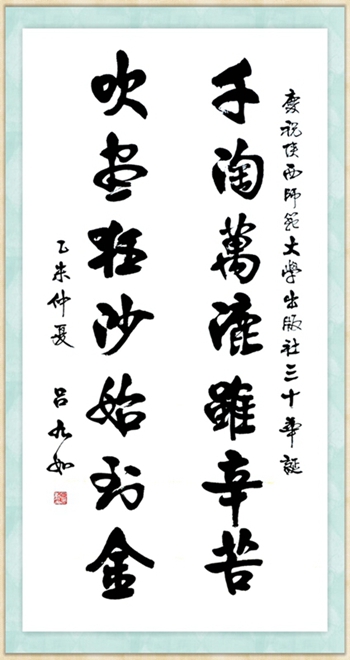 慶祝陝西師範大學出版社三十華誕
千淘萬漉雖辛苦
吹盡狂沙始到金
乙未仲夏 呂九如